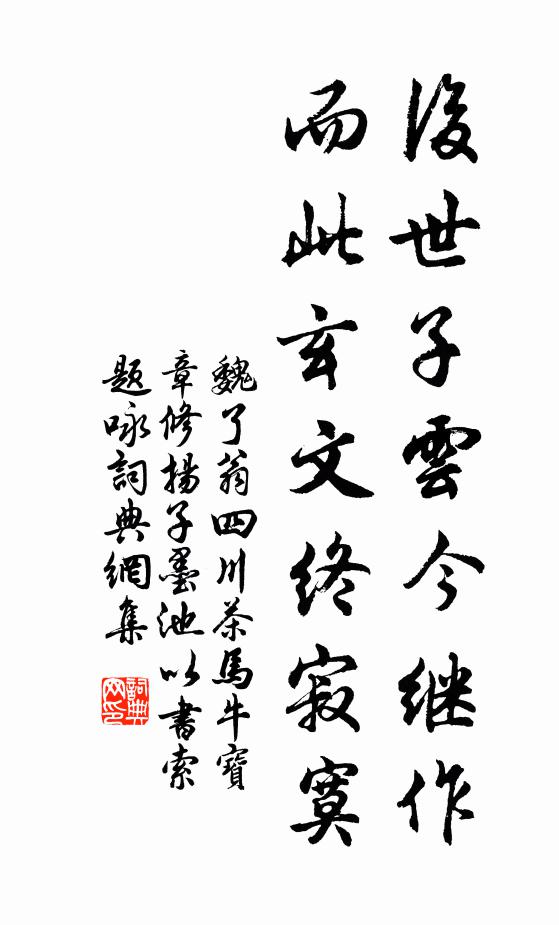 後世子雲今継作
而此玄文終寂寞
魏了翁四川茶馬牛寶
章修揚子墨池以書索
題咏詞典網集
詞典网印